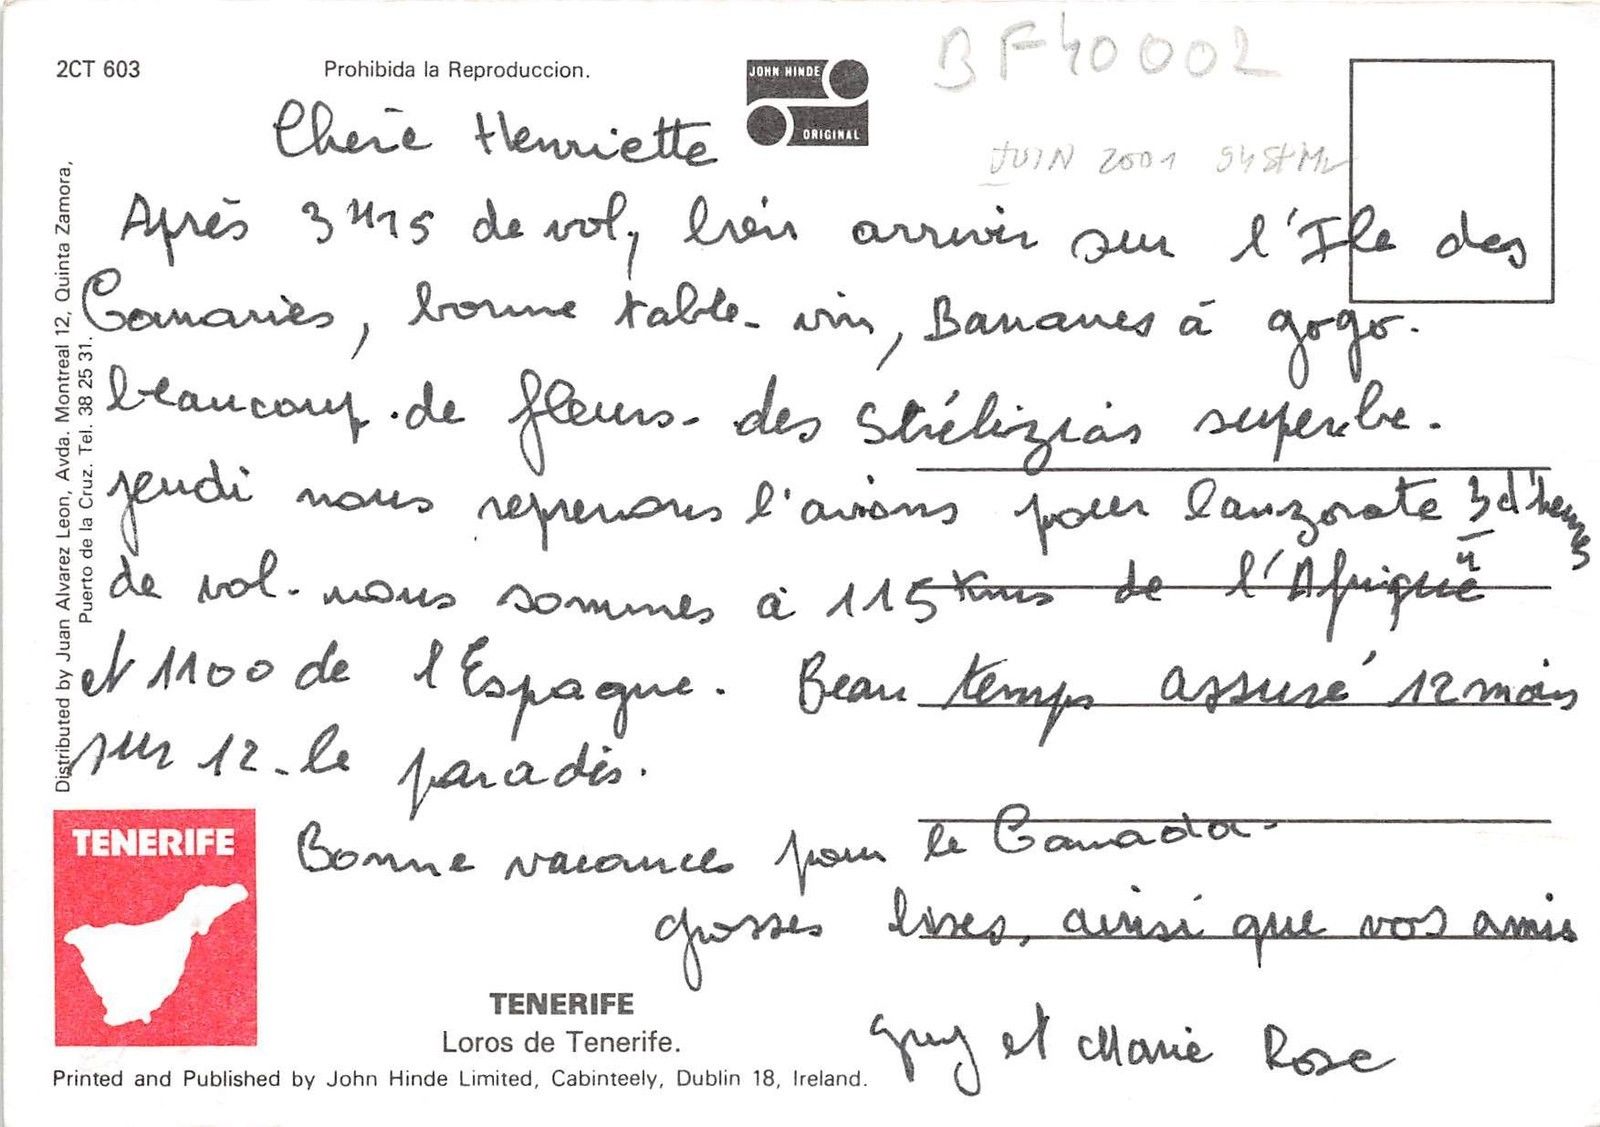 2CT 603
Prohibida la Reproduccion.
JOHN HINDE
ORIGINAL
BF40002
JUIN 2001
Chère Henriette
Après 3H15 de vol, bien arriver sur l'Ile des
Canaries, bonne table - vin, Bananes à gogo.
beaucoup de fleurs - des Strélizias superbe.
jeudi nous reprenons l'avions pour lanzorate 3/4 d'heures
de vol - nous sommes à 115 Kms de l'Afrique
et 1100 de l'Espagne. Beau temps assuré 12 mois
sur 12 - le paradis.
Bonne vacances pour le Canada -
grosses bises, ainsi que vos amis
guy et Marie Rose
Distributed by Juan Alvarez Leon, Avda. Montreal 12, Quinta Zamora,
Puerto de la Cruz. Tel. 38 25 31.
TENERIFE
TENERIFE
Loros de Tenerife.
Printed and Published by John Hinde Limited, Cabinteely, Dublin 18, Ireland.